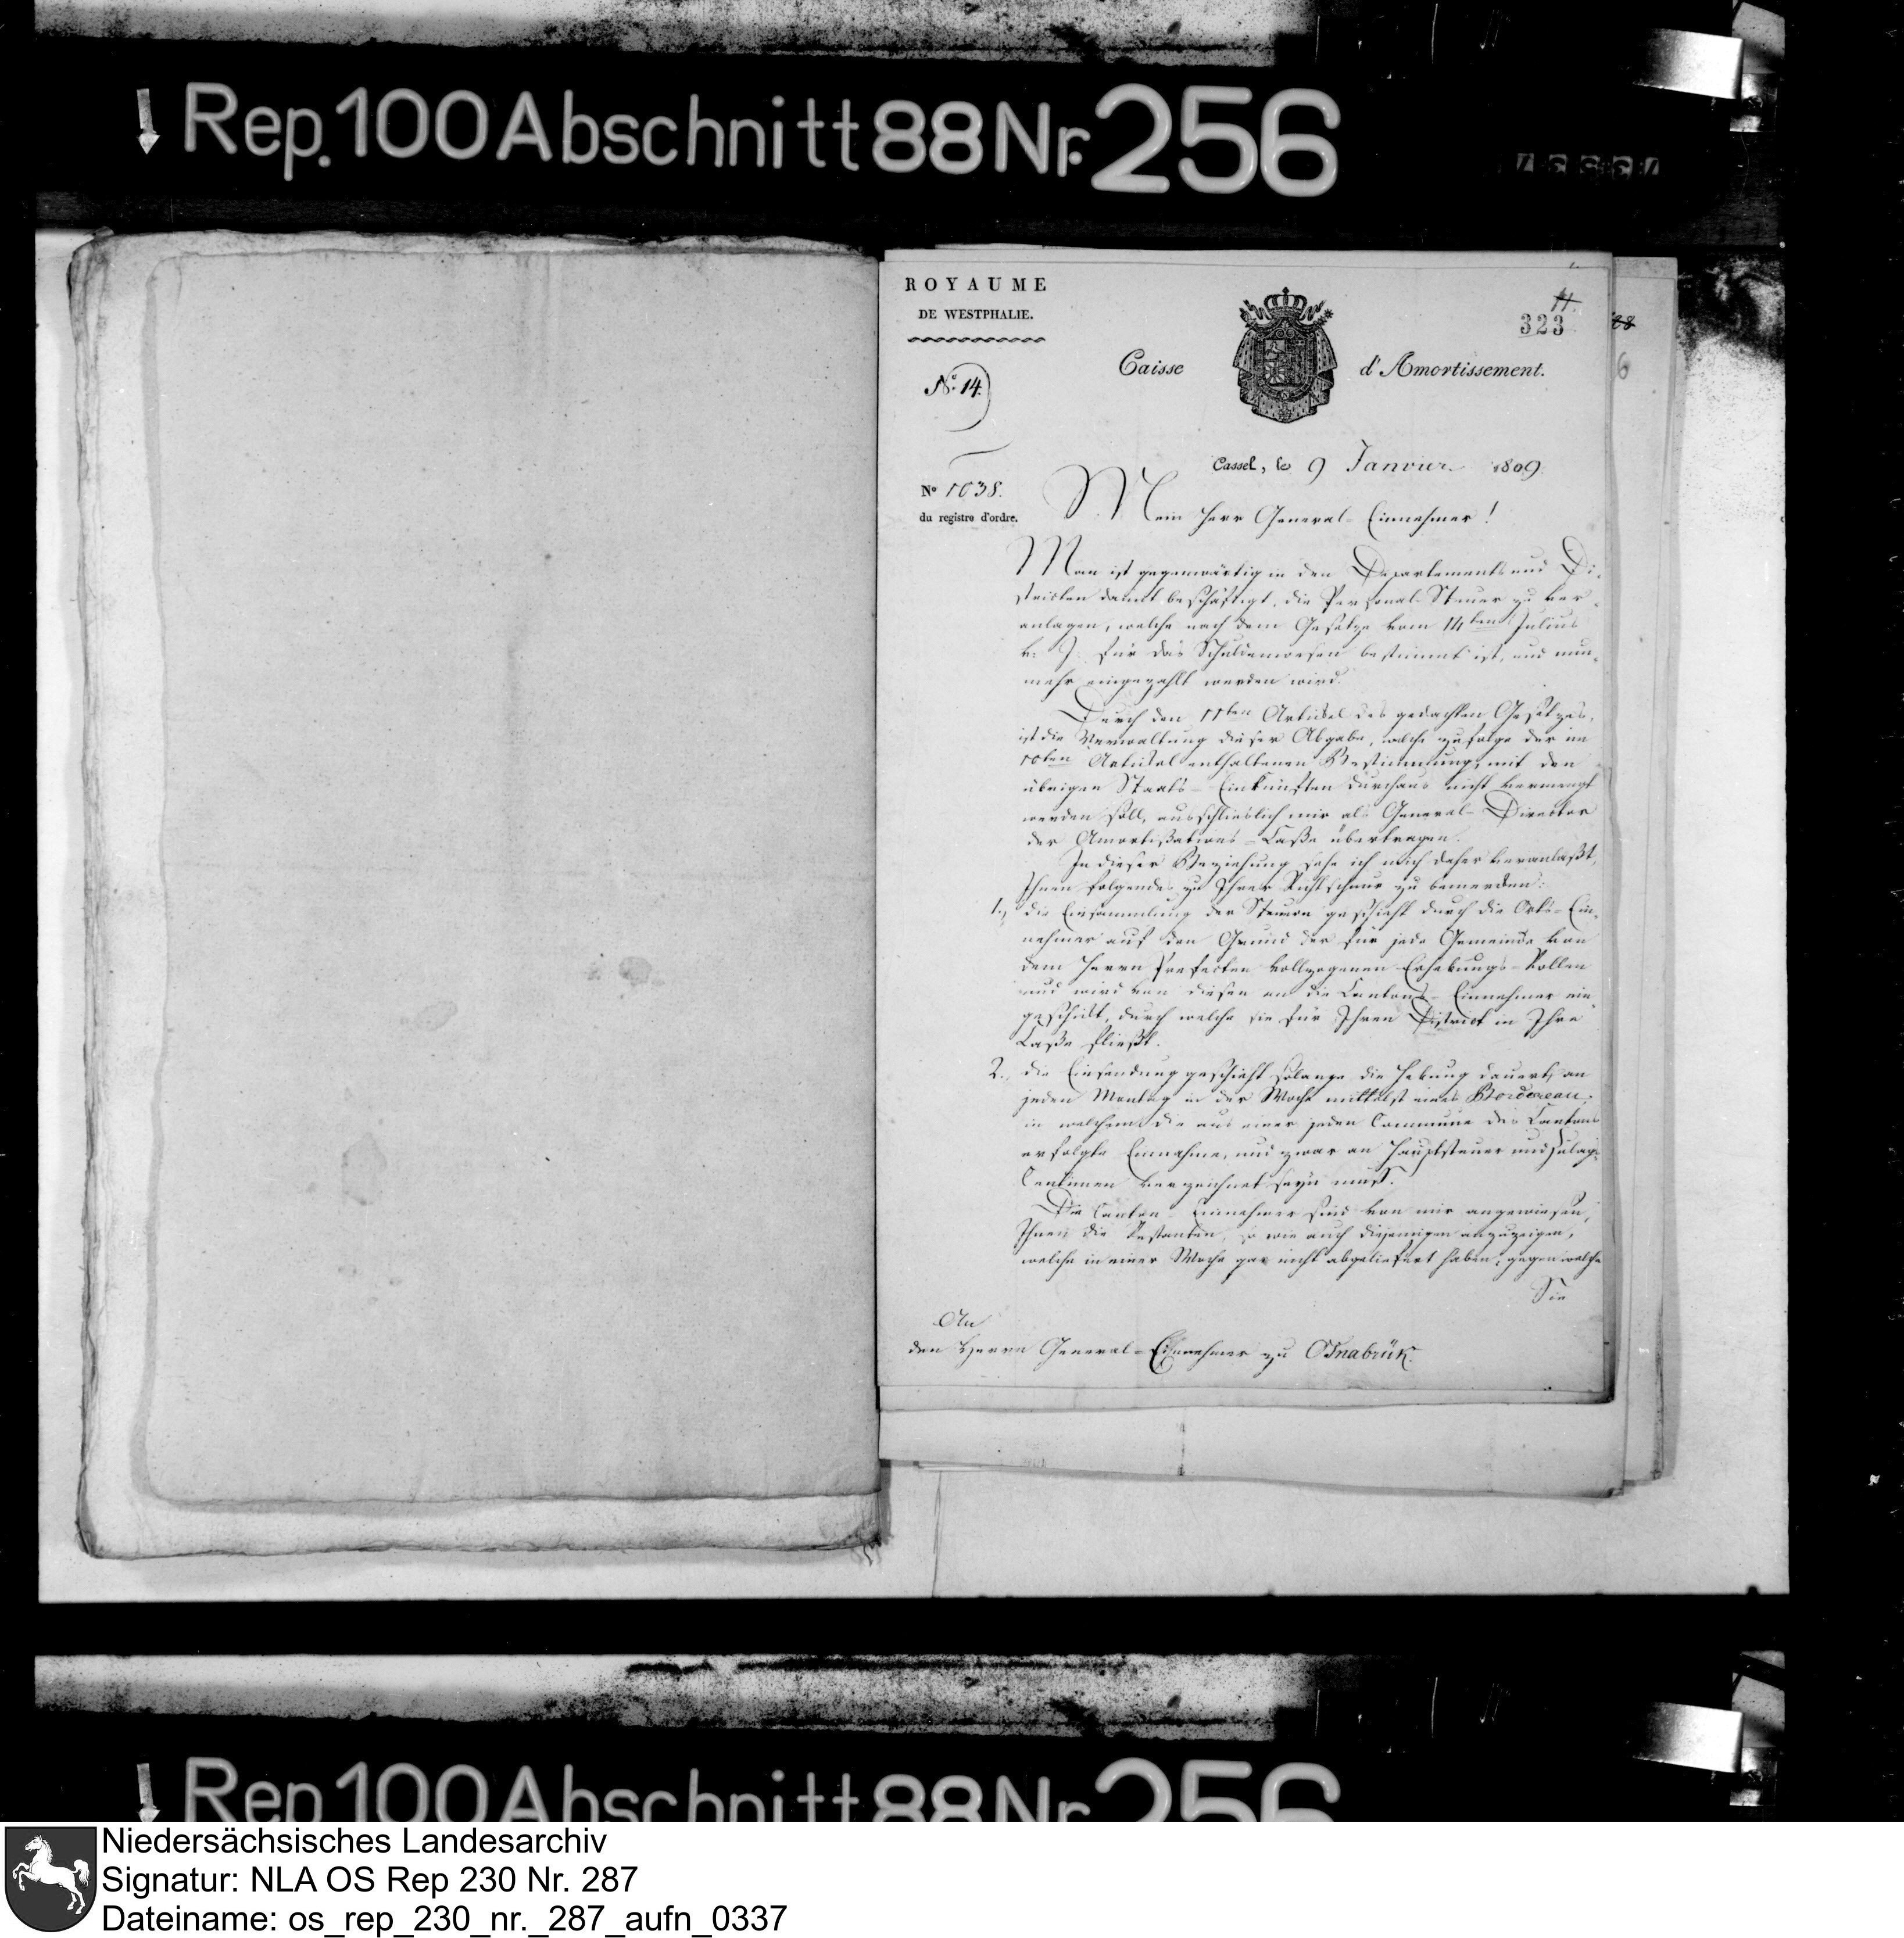 Rep. 100 Abschnitt 88 Nr. 256
ROYAUME
DE WESTPHALIE.
11.
323
88
6
Caisse d'Amortissement.
No. 14.
Cassel, le 9 Janvier 1809.
No 1038.
du registre d'ordre.
Mein Herr General-Einnehmer!
Man ist gegenwärtig in den Departements und Di-
stricten damit beschäftigt, die Personal-Steuer zu ver-
anlagen, welche nach dem Gesetze vom 14ten Julius
v: J. für das Schuldenwesen bestimmt ist, und nun-
mehr eingezahlt werden wird.
Durch den 11ten Artickel des gedachten Gesetzes,
ist die Verwaltung dieser Abgabe, welche zufolge der im
10ten Artickel enthaltenen Bestimmung, mit den
übrigen Staats-Einkünften durchaus nicht vermengt
werden soll, ausschlieslich mir als General-Director
der Amortißations-Caße übertragen.
In dieser Beziehung sehe ich mich daher veranlaßt,
Ihnen folgendes zu Ihrer Richtschnur zu bemerken:
1., die Einsammlung der Steuern geschieht durch die Orts-Ein-
nehmer auf den Grund der für jede Gemeinde von
dem Herrn Prefecten vollzogenen Erhebungs-Rollen
und wird von diesen an die Cantons-Einnehmer ein-
geschickt, durch welche sie für Ihren District in Ihre
Caße fließt.
2., die Einsendung geschieht solange die Hebung dauert, an
jeden Montag in der Woche mittelst eines Bordereau,
in welchem die aus einer jeden Commune des Cantons
erfolgte Einnahme, und zwar an Hauptsteuer und Zulag-
Centimen verzeichnet seyn muß.
Die Canton-Einnehmer sind von mir angewiesen,
Ihnen die Restanten, so wie auch diejenigen anzuzeigen,
welche in einer Woche gar nicht abgeliefert haben; gegen welche
Sie
An
den Herrn General-Einnehmer zu Osnabrük.
Rep. 100 Abschnitt 88 Nr. 256
Niedersächsisches Landesarchiv
Signatur: NLA OS Rep 230 Nr. 287
Dateiname: os_rep_230_nr._287_aufn_0337